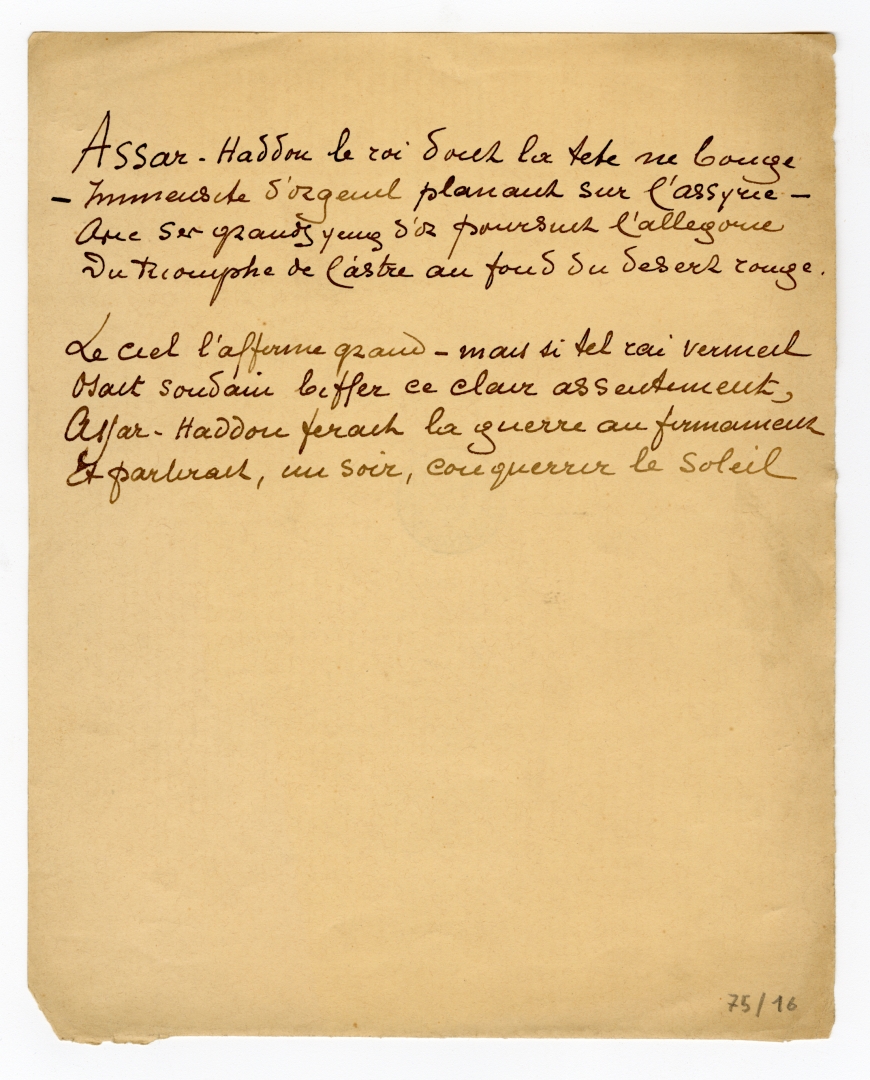 Assar-Haddon le roi dont la tete ne bouge
– Immensite d'orgeuil planant sur l'assyrie –
Avec ses grands yeux d'or poursuit l'allegorie
Du triomphe de l'astre au fond du desert rouge.
Le ciel l'affirme grand – mais si tel rai vermeil
Osait soudain biffer ce clair assentiment,
Assar-Haddon ferait la guerre au firmament
Et partirait, un soir, conquerrir le Soleil
75/16